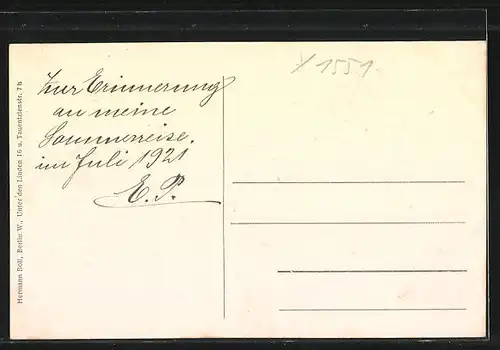 Zur Erinnerung
an meine
Sommerreise.
im Juli 1921
E. P.
1551.
Hermann Boll, Berlin W., Unter den Linden 16 u. Tauentzienstr. 7b